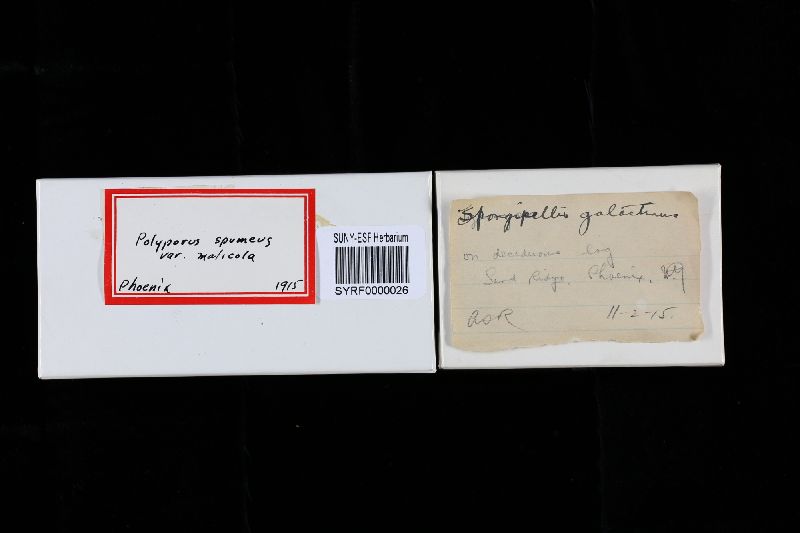 Polyporus spumeus
var. malicola
Phoenix 1915
SUNY-ESF Herbarium
SYRF0000026
Spongipellis galactinus
on deciduous log
Sand Ridge, Phoenix, N.Y
11-2-15.